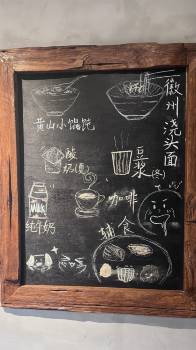 徽州浇头面
黄山小馄饨
酸奶(夏)
豆浆(冬)
Milk
纯牛奶
咖啡
辅食